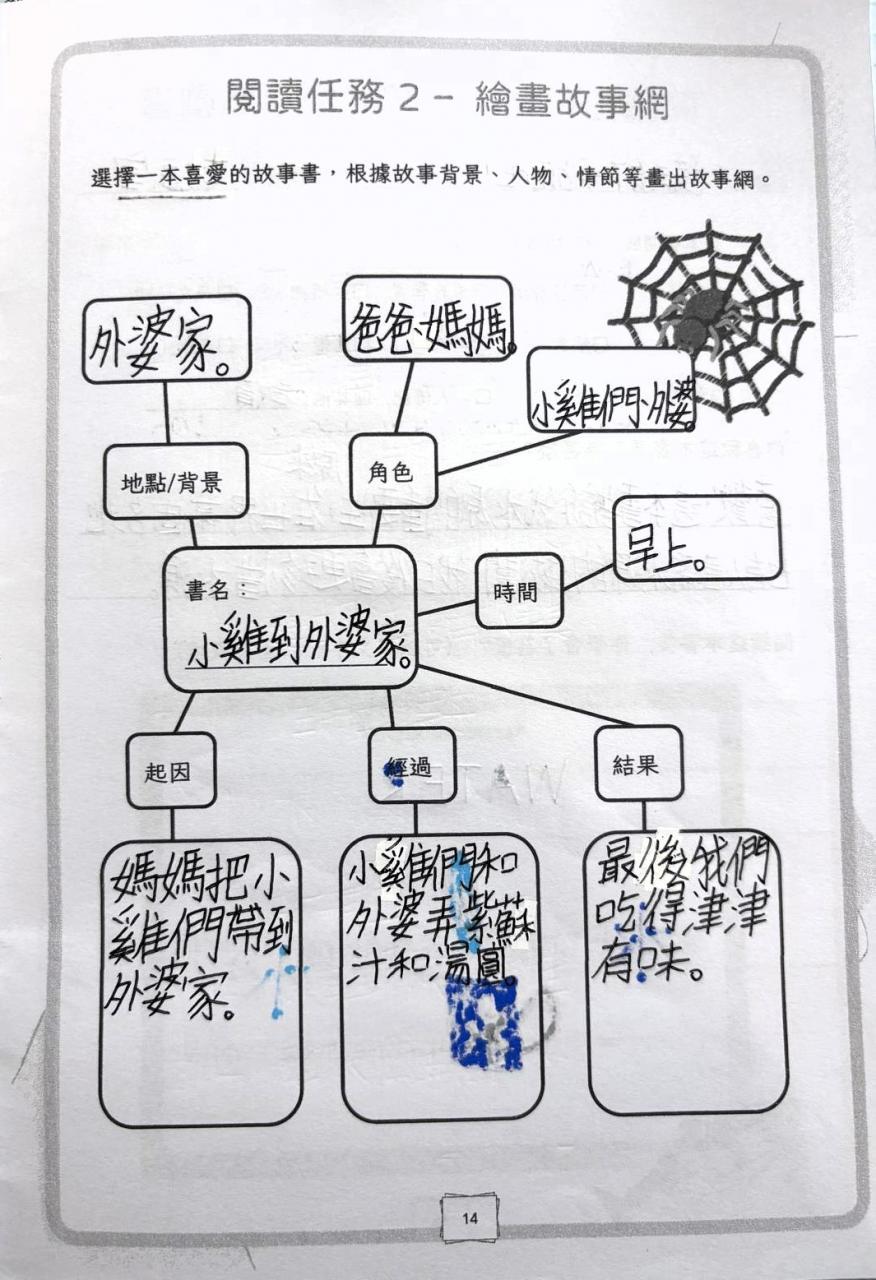 閱讀任務 2 - 繪畫故事網
選擇一本喜愛的故事書，根據故事背景、人物、情節等畫出故事網。
外婆家。
爸爸、媽媽。
小雞們、外婆。
地點/背景
角色
早上。
時間
書名：
小雞到外婆家。
起因
經過
結果
媽媽把小
雞們帶到
外婆家。
小雞們和
外婆弄紫蘇
汁和湯圓。
最後我們
吃得津津
有味。
14